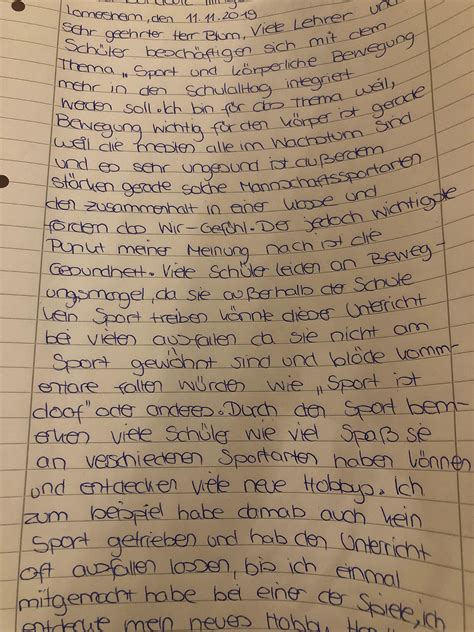 Lamersheim, den 11.11.2019
Sehr geehrter Herr Blum, Viele Lehrer und
Schüler beschäftigen sich mit dem
Thema „Sport und körperliche Bewegung
mehr in den Schulalltag integriert
werden soll. Ich bin für das Thema weil,
Bewegung wichtig für den Körper ist gerade
weil die meisten alle im Wachstum sind
und es sehr ungesund ist außerdem
stärken gerade solche Mannschaftssportarten
den zusammenhalt in einer Klasse und
fördern das Wir-Gefühl. Der jedoch wichtigste
Punkt meiner Meinung nach ist die
Gesundheit. Viele Schüler leiden an Beweg-
ungsmangel, da sie außerhalb der Schule
kein Sport treiben könnte dieser Unterricht
bei vielen ausfallen da sie nicht am
Sport gewöhnt sind und blöde komm-
entare fallen würden wie „Sport ist
doof" oder anderes. Durch den Sport bem-
erken viele Schüler wie viel Spaß sie
an verschiedenen Sportarten haben können
und entdecken viele neue Hobbys. Ich
zum beispiel habe damals auch kein
Sport getrieben und hab den Unterricht
oft ausfallen lassen, bis ich einmal
mitgemacht habe bei einer der Spiele, ich
entdeckte mein neues Hobby